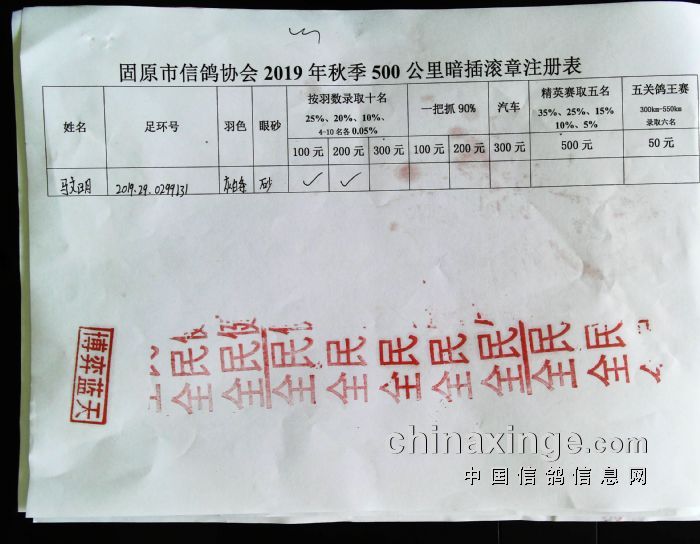 固原市信鸽协会 2019 年秋季 500 公里暗插滚章注册表
姓名 足环号 羽色 眼砂 按羽数录取十名 一把抓 90% 汽车 精英赛取五名 五关鸽王赛
25%、20%、10%、 35%、25%、15% 300km-550km
4-10 名各 0.05% 10%、5% 录取六名
100 元 200 元 300 元 100 元 200 元 300 元 500 元 50 元
马文明 2019.29.0299131 砂 ✓ ✓
博弈蓝天
全民 全民 全民 全民 全民 全民 全民 全民 全民
chinaxinge.com
中国信鸽信息网